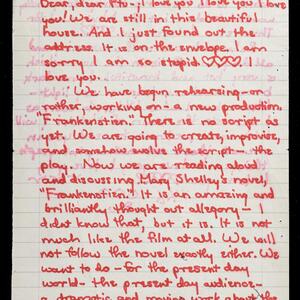 Dear, dear Pfu-, I love you I love you I love
you! We are still in this beautiful
house. And I just found out the
address. It is on the envelope. I am
sorry I am so stupid. ♡♡♡ I
love you.
We have begun rehearsing - or
rather, working on - a new production.
"Frankenstien." There is no script as
yet. We are going to create, improvise,
and somehow evolve the script - the
play. Now we are reading aloud
and discussing Mary Shelley's novel,
"Frankenstien." It is an amazing and
brilliantly thought out allegory - I
didnt know that, but it is. It is not
much like the film at all. We will
not follow the novel exactly either. We
want to do - for the present day
world - the present day audience -
a dramatic and moving work about the